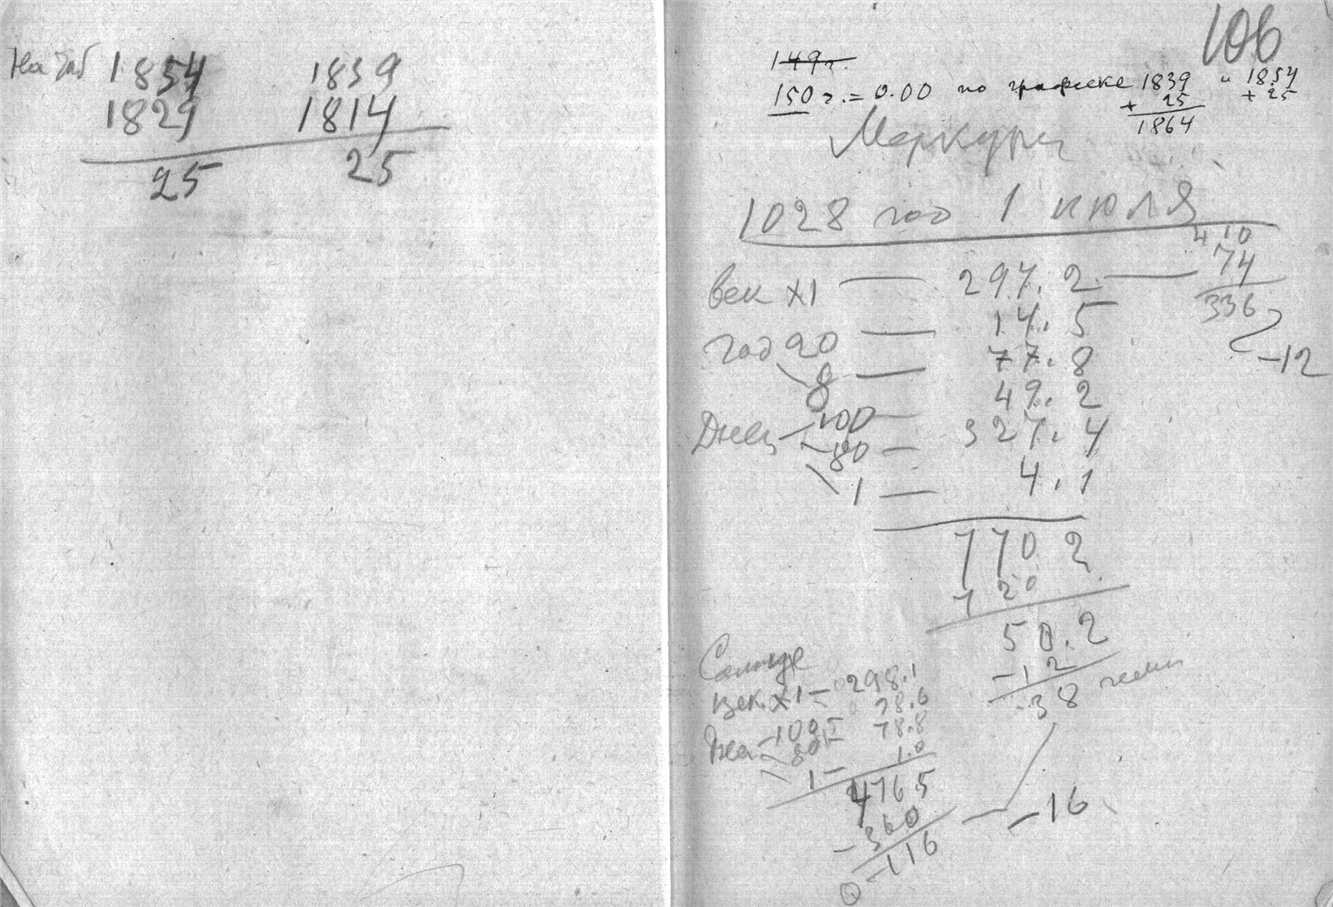 На Таб 1854 1839
1829 1814
25 25
106
149 г.
150 г. = 0.00 по графике 1839 и 1854
+ 25 + 25
1864
Меркурий
1028 год 1 июля
4 10
век XI — 297.2 — 74
14.5 336
год 20 — 77.8 -12
8 — 49.2
Дней 100 — 327.4
80 — 4.1
1 —
770.2
720
50.2
-12
38
Солнце
век XI — 298.1
78.6
100 — 78.8
80
1 — 1.0
476.5
-360 — -16
116